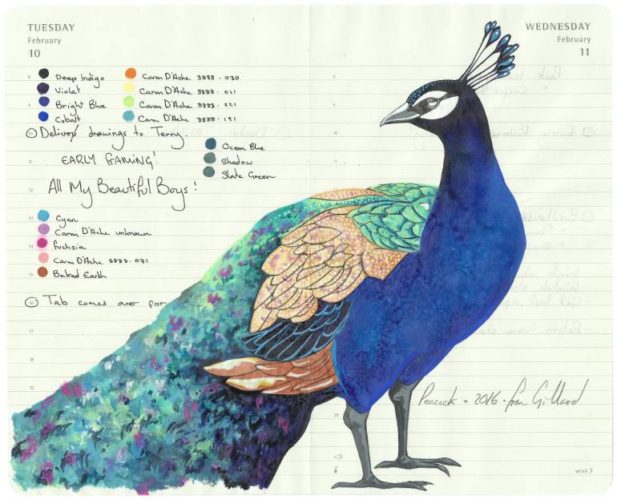 TUESDAY
February
10
WEDNESDAY
February
11
Deep Indigo
Violet
Bright Blue
Cobalt
Caran D'Ache 3888 - 030
Caran D'Ache 3888 - 011
Caran D'Ache 3888 - 221
Caran D'Ache 3888 - 191
Delivers drawings to Terry
EARLY FRAMING!
Ocean Blue
Shadow
Slate Green
All My Beautiful Boys!
Cyan
Caran D'Ache unknown
Fuchsia
Caran D'Ache 3888 - 071
Baked Earth
Tab comes over for
Peacock - 2016 - Fran Giffard
week 7